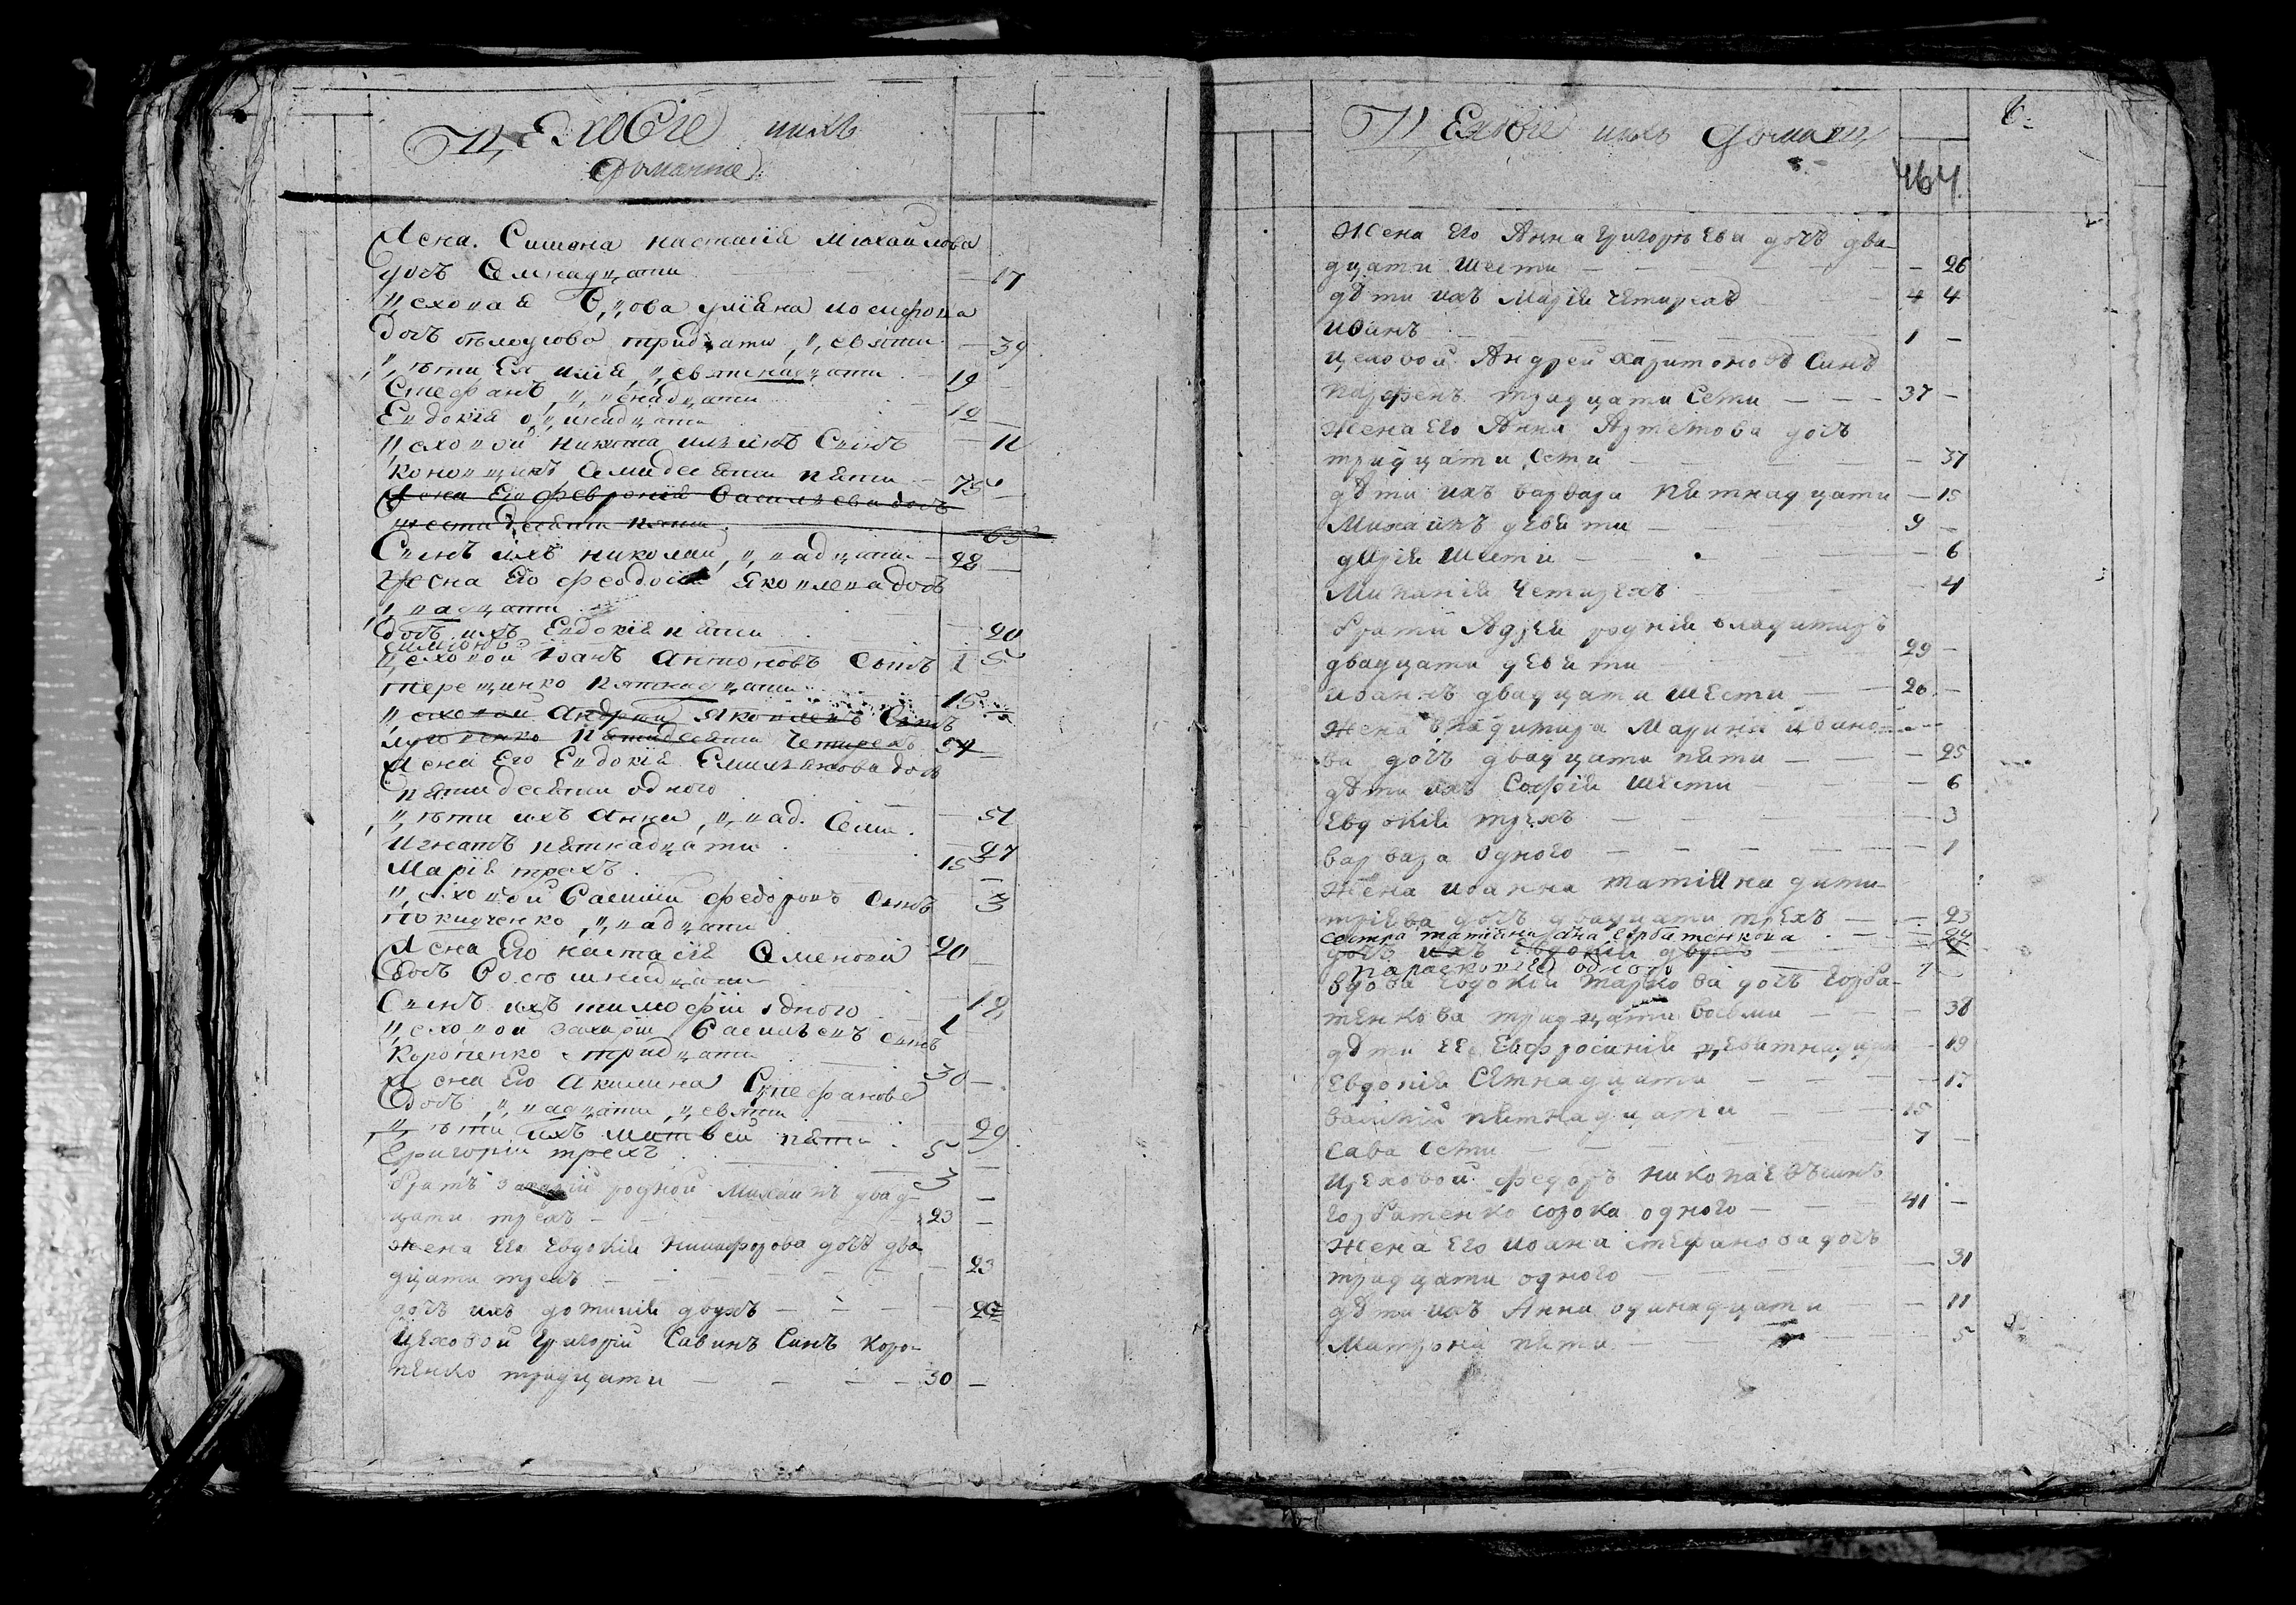 Цеховіе ихъ
домашніе
Жена Симона настасіѧ михайлова
дочъ Семнадцати 17
цеховаѧ вдова улиѧна иосифова
дочъ тридцати девѧти 39
дѣти Еѧ илиѧ девѧтнадцати 19
Стефанъ
Евдокіѧ одинадцати 11
цеховой никита ильинъ Синъ
Семидесѧти пѧти 75
Жена Его февроніѧ василиева дочъ
шестидесѧти пѧти 65
Синъ ихъ николай двадцати 28
Жена Его феодосіѧ Яковлева дочъ
двадцати 20
дочъ ихъ Евдокіѧ пѧти 5
симионъ 1
цеховой іванъ антоновъ Синъ
терещинко пѧтнадцати 15
цеховой андрей Яковлевъ Синъ
пѧтидесѧти четирехъ 54
Жена Его Евдокіѧ Емилѧнова дочъ
пѧтидесѧти одного 51
дѣти ихъ анна двад. Семи 27
Игнатъ пѧтнадцати 15
Маріѧ трехъ 3
цеховой Василий федоровъ Синъ
двадцати 20
Жена Его настасіѧ Семенова
дочъ Восемнадцати 18
Синъ ихъ тимофій одного 1
цеховой захарій Василѣевъ Синъ
Коропенко тридцати 30
Жена Его акилина Стефанова
дочъ двадцати девѧти 29
дѣти ихъ матвей пѧти 5
Григорій трехъ 3
братъ захарій родной Михаилъ двад-
цати трехъ 23
Жена Его Евдокіѧ никифорова дочъ два-
дцати трехъ 23
дочъ ихъ двухъ 2
Цеховой Григорій Савинъ Синъ Коро-
пенко тридцати 30
Цеховіе ихъ домашн 6
464
Жена Его Анна Григорьева дочъ два-
дцати шести 26
дѣти ихъ Маріѧ Четирехъ 4 4
иванъ 1
цеховой Андрей харитоновъ Синъ
парфенъ тридцати Семи 37
Жена Его Анна Артемова дочъ
тридцати Семи 37
дѣти ихъ варвара пѧтнадцати 15
Михаилъ девѧти 9
дариѧ шести 6
Миланіѧ Четирехъ 4
брати Адрей родніи владимиръ
двадцати девѧти 29
иванъ двадцати шести 26
Жена владимира Марина ивано-
ва дочъ двадцати пѧти 25
дѣти ихъ Софіѧ шести 6
Евдокіѧ трехъ 3
варвара одного 1
Жена ивана татиѧна дими-
тріева дочъ двадцати трехъ 23
сестра татиѧни анна горбатенкова
дочъ ихъ Евдокіѧ двухъ 2
парасковиѧ одного 1
вдова Евдокіѧ маркова дочъ горба-
тенкова тридцати восьми 38
дѣти Ее Евфросиніѧ девѧтнадцати 19
Евдокіѧ Семнадцати 17
василій пѧтнадцати 15
Сава Семи 7
цеховой федоръ николаевъ синъ
горбатенко сорока одного 41
Жена Его иоана стефанова дочъ
тридцати одного 31
дѣти ихъ Анна одинадцати 11
Матрона пѧти 5